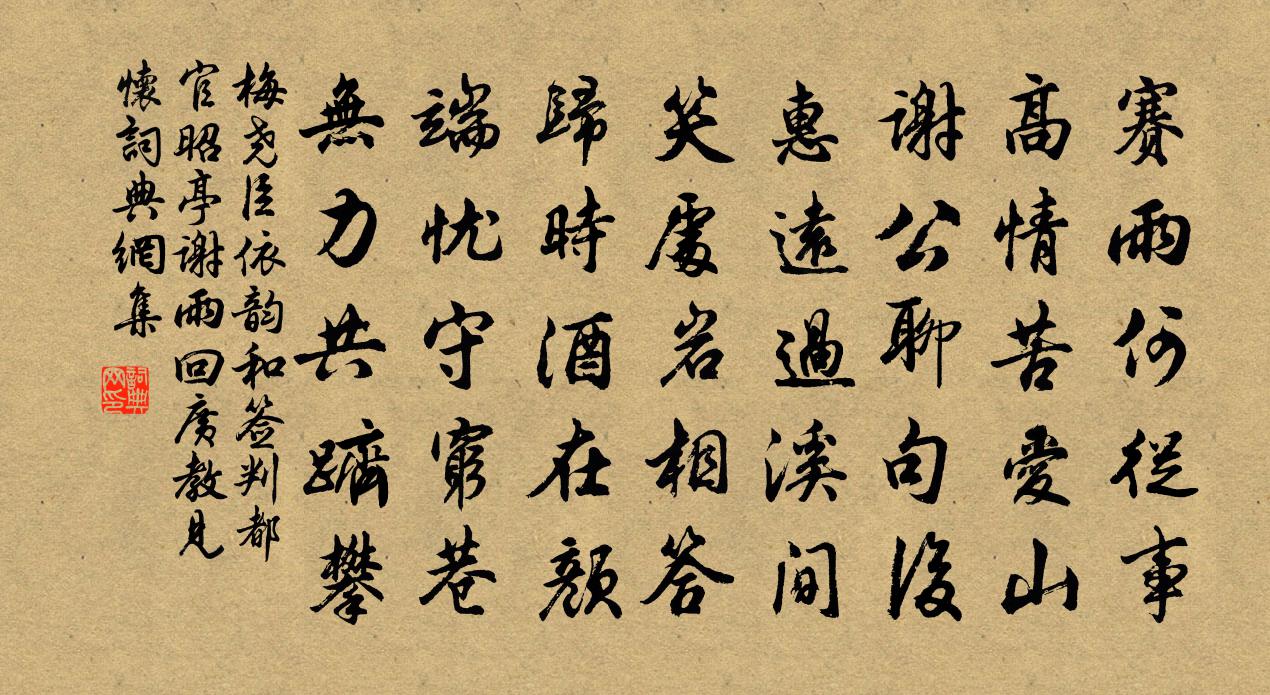 賽雨何從事
高情苦愛山
謝公聊句後
惠遠過溪間
笑處岩相答
歸時酒在顏
端忧守窮巷
無力共躋攀
梅尧臣依韵和签判都
官昭亭謝雨回廣教見
懷詞典網集
詞典
网印